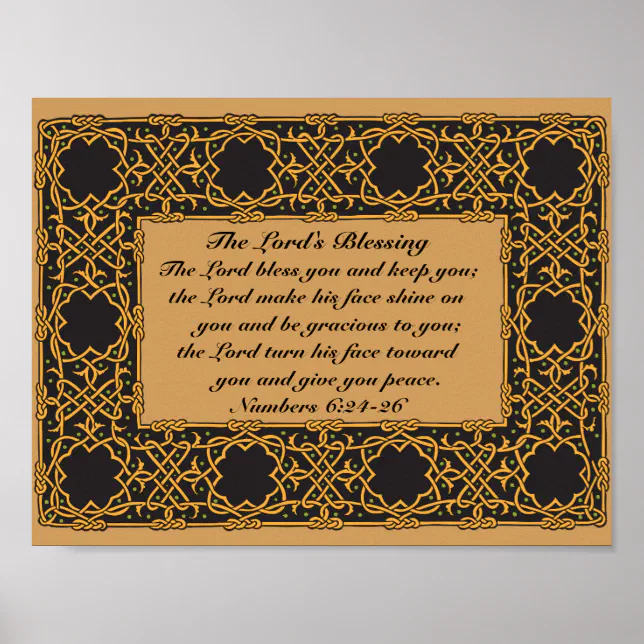 The Lord's Blessing
The Lord bless you and keep you;
the Lord make his face shine on
you and be gracious to you;
the Lord turn his face toward
you and give you peace.
Numbers 6:24-26